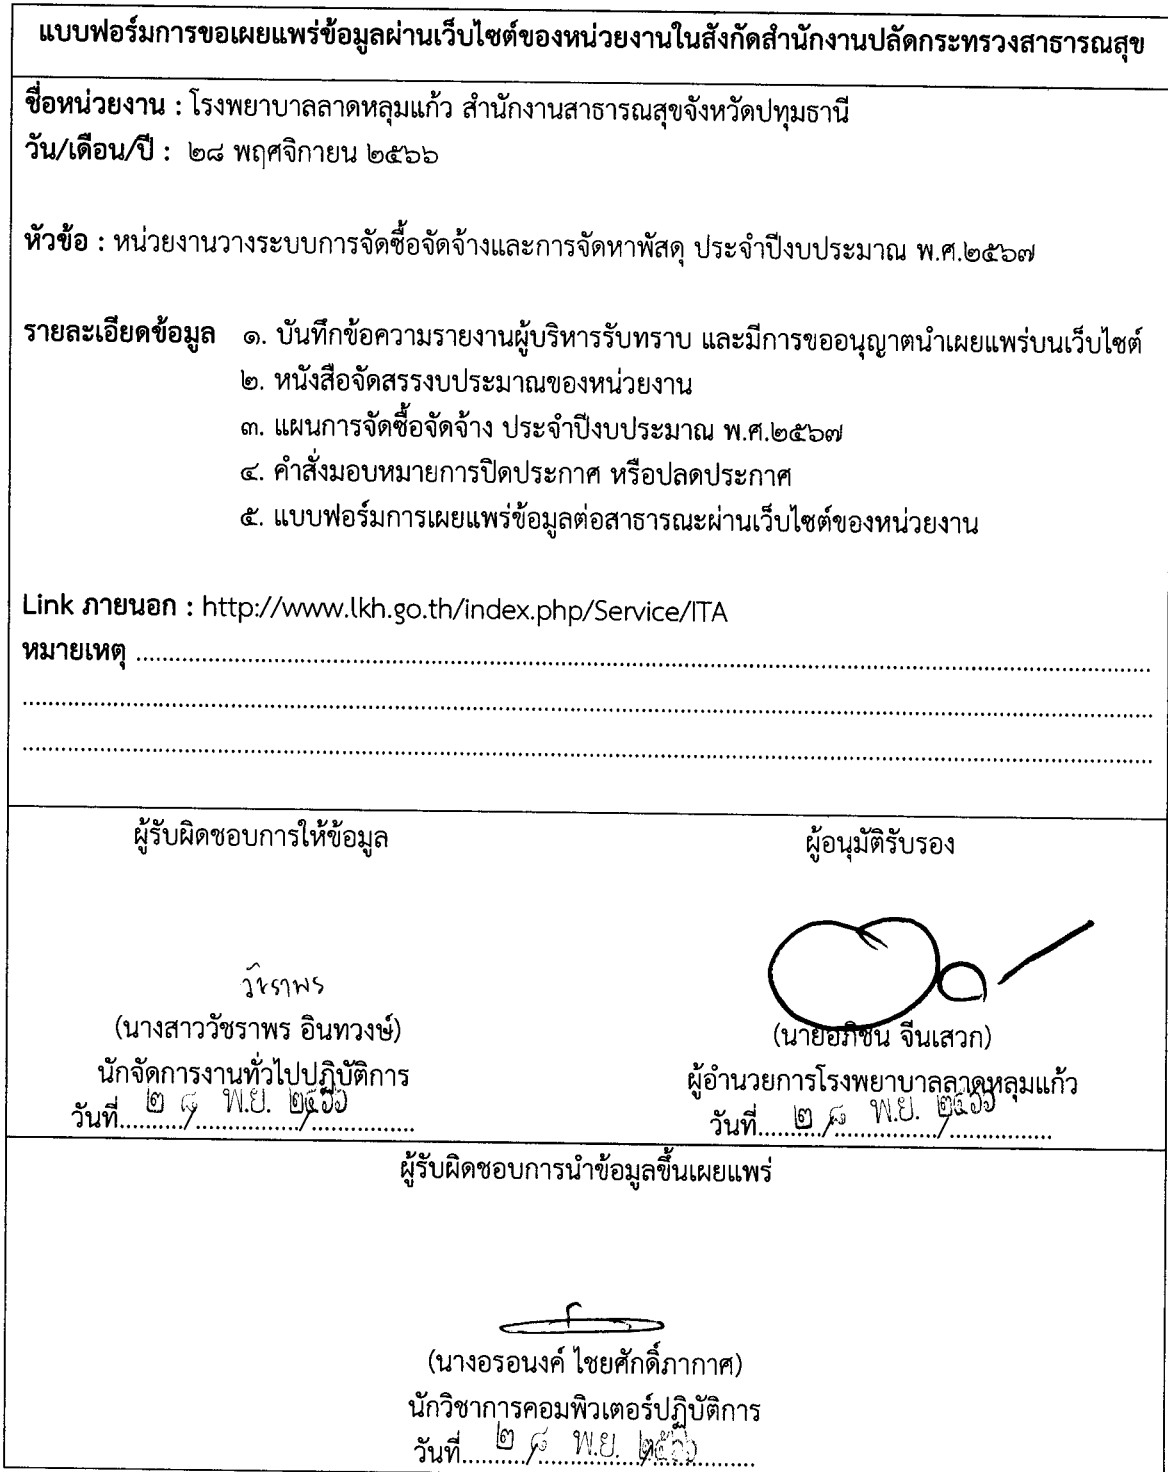 แบบฟอร์มการขอเผยแพร่ข้อมูลผ่านเว็บไซต์ของหน่วยงานในสังกัดสำนักงานปลัดกระทรวงสาธารณสุข
ชื่อหน่วยงาน : โรงพยาบาลลาดหลุมแก้ว สำนักงานสาธารณสุขจังหวัดปทุมธานี
วัน/เดือน/ปี : ๒๘ พฤศจิกายน ๒๕๖๖
หัวข้อ : หน่วยงานวางระบบการจัดซื้อจัดจ้างและการจัดหาพัสดุ ประจำปีงบประมาณ พ.ศ.๒๕๖๗
รายละเอียดข้อมูล ๑. บันทึกข้อความรายงานผู้บริหารรับทราบ และมีการขออนุญาตนำเผยแพร่บนเว็บไซต์
๒. หนังสือจัดสรรงบประมาณของหน่วยงาน
๓. แผนการจัดซื้อจัดจ้าง ประจำปีงบประมาณ พ.ศ.๒๕๖๗
๔. คำสั่งมอบหมายการปิดประกาศ หรือปลดประกาศ
๕. แบบฟอร์มการเผยแพร่ข้อมูลต่อสาธารณะผ่านเว็บไซต์ของหน่วยงาน
Link ภายนอก : http://www.lkh.go.th/index.php/Service/ITA
หมายเหตุ
ผู้รับผิดชอบการให้ข้อมูล
วัชราพร
(นางสาววัชราพร อินทวงษ์)
นักจัดการงานทั่วไปปฏิบัติการ
วันที่ ๒ ๘ / พ.ย. / ๒๕๖๖
ผู้อนุมัติรับรอง
(นายอภิชน จีนเสวก)
ผู้อำนวยการโรงพยาบาลลาดหลุมแก้ว
วันที่ ๒ ๘ / พ.ย. / ๒๕๖๖
ผู้รับผิดชอบการนำข้อมูลขึ้นเผยแพร่
(นางอรอนงค์ ไชยศักดิ์ภากาศ)
นักวิชาการคอมพิวเตอร์ปฏิบัติการ
วันที่ ๒ ๘ / พ.ย. / ๒๕๖๖